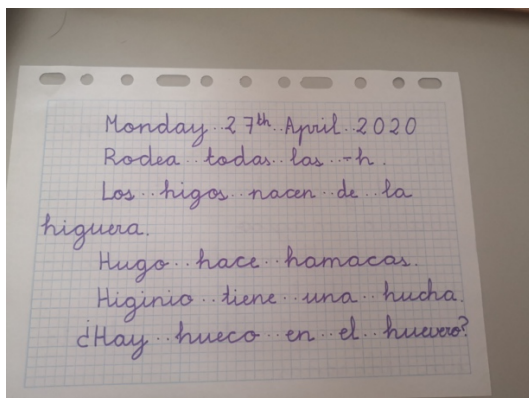 Monday 27th April 2020
Rodea todas las -h.
Los higos nacen de la
higuera.
Hugo hace hamacas.
Higinio tiene una hucha.
¿Hay hueco en el huevero?